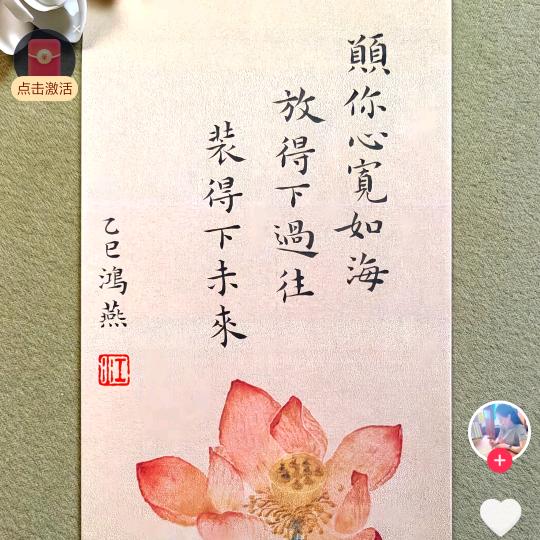 願你心寬如海
放得下過往
裝得下未來
乙巳鴻燕
点击激活